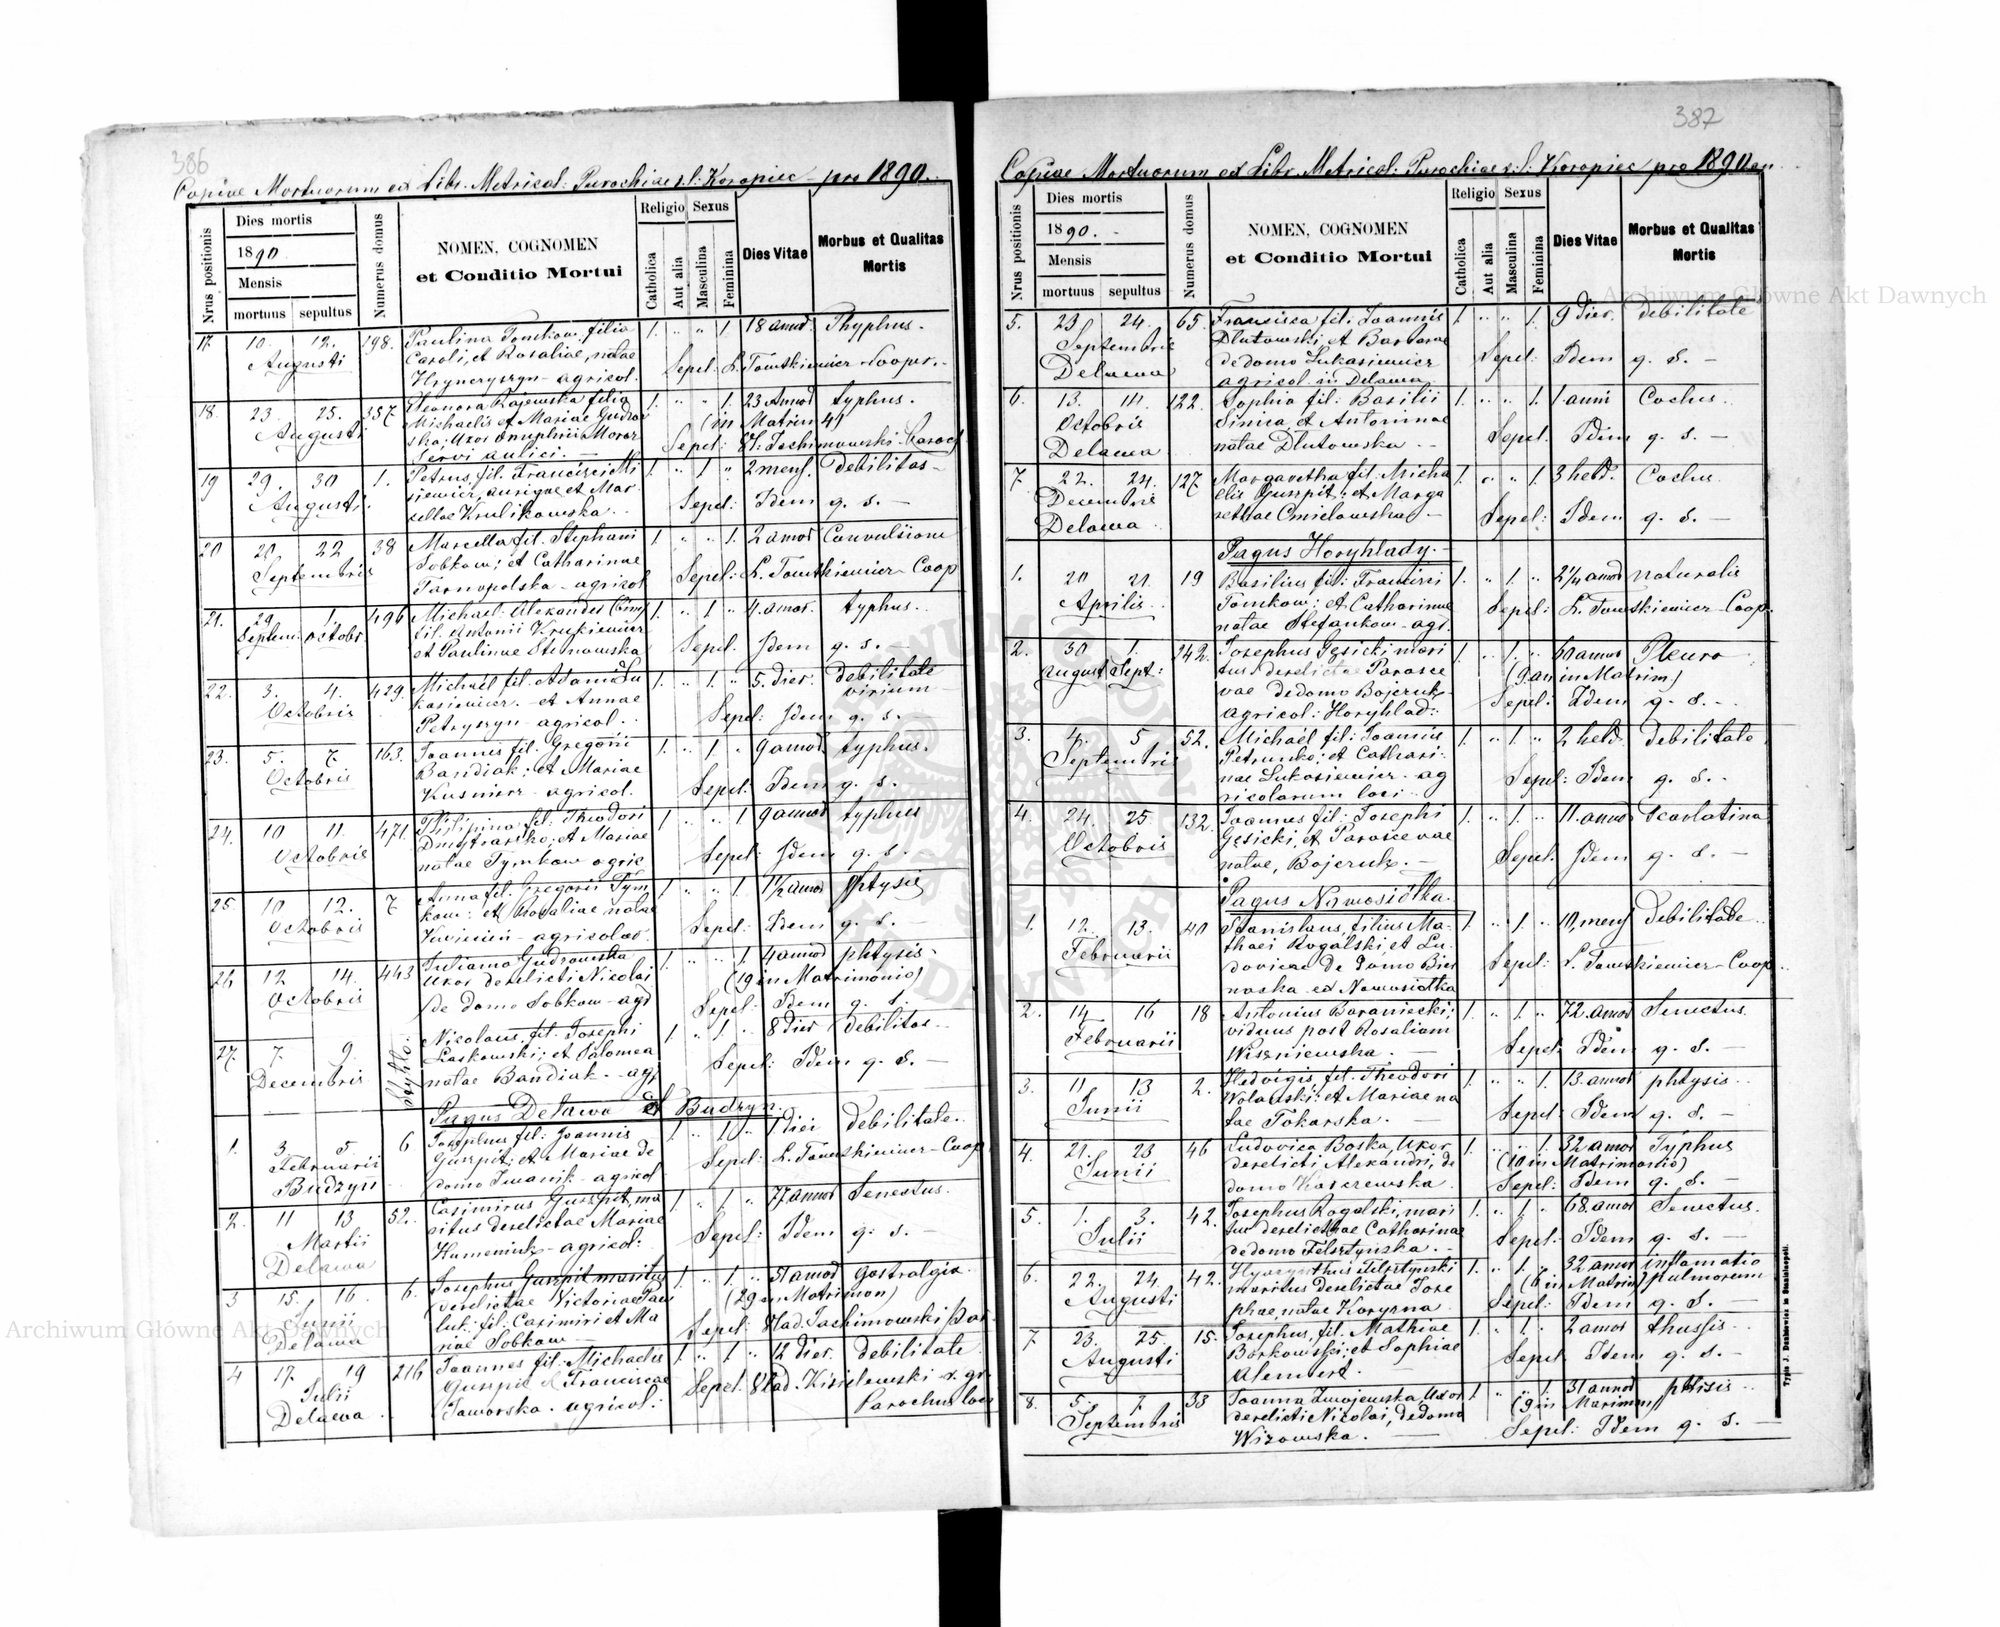 386
Copiae Mortuorum ex Libr. Metrical: Parochiae r. l: Koropiec pro 1890.
Nrus positionis
Dies mortis
1890
Mensis
mortuus sepultus
Numerus domus
NOMEN, COGNOMEN
et Conditio Mortui
Religio Sexus
Catholica
Aut alia
Masculina
Feminina
Dies Vitae
Morbus et Qualitas
Mortis
17. 10. 12. 198. Paulina Tomkow: filia 1. " " 1. 18 annor. Thyphus.
Augusti Caroli, et Rosaliae, natae
Hrynczyszyn - agricol. Sepel: L. Tomtkiewicz Coopr.
18. 23. 25. 357 Eleonora Rajewska filia 1. " " 1. 23 Annor typhus.
Augusti Michaelis et Mariae Gudzow (in Matrim 4)
ska; Uxor Onuphrii Moroz Sepel: Wl: Jachimowski Paroch
Servi aulici.
19 29. 30 1. Petrus, fil. Francisci Mi 1. " 1 " 2 mens. debilitas -
Augusti. siewicz, aurigae et Mar-
cellae Krulikowska. Sepel: Idem q. s. -
20 20. 22 38 Marcella fil. Stephani 1. " " 1. 2 annor Convulsione
Septembris Sobkow; et Catharinae
Tarnopolska - agricol Sepel: L. Tomtkiewicz Coop
21. 29. 1. 496 Michael Alexander (bim) 1. " 1. " 4. annor. typhus.
Septem: octobr. fil. Antonii Krukiewicz
et Paulinae Stanowska Sepel. Idem q. s. -
22. 3. 4. 429. Michaël fil. Adami Lu 1. " 1. " 5. dier. debilitate
Octobris kasiewicz. et Annae virium
Petryszyn - agricol. Sepel: Idem q. s.
23. 5. 7 163. Joannes fil. Gregorii 1. " 1. " 9 annor typhus.
Octobris Bandiak; et Mariae
Kusnierz - agricol. Sepel: Idem q. s.
24. 10 11. 471. Philipina fil: Theodori 1. " " 1 9 annor typhus
Octobris Dmytraszko; et Mariae
natae Tymkow agric Sepel: Idem q. s.
25. 10 12. 7 Anna fil. Gregorii Tym 1 " " 1. 1½ annor phtysis
Octobris kow: et Rosaliae natae
agricolar. Sepel: Idem q. s.
26 12 14. 443 Juliana Gudzowska 1. " " 1. 4 annor phtysis.
Octobris Uxor derelicti Nicolai (19 in Matrimonio)
de domo Sobkow - agr Sepel: Idem q. s.
27. 7. 9. Nicolaus, fil. Josephi 1 " 1 " 8 dier debilitas.
Decembris Laskowski; et Salomea
natae Bandiak. - agr Sepel: Idem q. s. -
Pagus Delawa et Budzyn.
1. 3. 5. 6 Josephus fil: Joannis 1 " 1 " 1 diei debilitate.
Februarii Guszpit; et Mariae de
Budzyn domo Iwanik - agricol Sepel: L. Tomtkiewicz - Coop
2. 11 13 52. Casimirus Guszpit, ma 1. " 1. " 77 annor Senectus.
Martii ritus derelictae Mariae
Delawa Humeniuk - agricol: Sepel: Idem q. s. -
3 15. 16. 6. Josephus Guszpit maritus 1. " 1. " 51 annor gastralgia.
Junii derelictae Victoriae Paw (29 in Matrimon)
Delawa luk: fil: Casimiri et Ma
riae Sobkow - Sepel: Wlad. Jachimowski Par.
4 17. 19 216 Joannes fil. Michaelis 1. " 1 " 12 dier. debilitate
Julii Guszpit et Franciscae
Delawa. Jaworska - agricol: Sepel: Wlad. Kisielewski r. gr.
Parochus loci
387
Copiae Mortuorum ex Libr. Metrical: Parochiae r: l: Koropiec pro 1890 an.
Nrus positionis
Dies mortis
1890.
Mensis
mortuus sepultus
Numerus domus
NOMEN, COGNOMEN
et Conditio Mortui
Religio Sexus
Catholica
Aut alia
Masculina
Feminina
Dies Vitae
Morbus et Qualitas
Mortis
5. 23 24. 65. Francisca fil: Joannis 1. " " 1. 9 dier. debilitate
Septembris Dlutowski, et Barbarae
Delawa de domo Lukasiewicz Sepel: Idem q. s. -
agricol. in Delawa
6. 13. 14. 122. Sophia fil: Basilii 1. " " 1. 1 anni Coclus.
Octobris Sinica, et Antoninae
Delawa natae Dlutowska - Sepel: Idem q. s. -
7. 22. 24. 127 Margaretha fil. Micha 1. " " 1. 3 hebd. Coclus
Decembris elis Guszpit; et Marga
Delawa rethae Cmielowska - Sepel: Idem q. s. -
Pagus Horyhlady. -
1. 20 21. 19 Basilius fil: Francisci 1. " 1. " 2¼ annor naturalis
Aprilis Tomkow; et Catharinae
natae Stefankow - agr. Sepel: L. Tomtkiewicz - Coop.
2. 30 1. 242. Josephus Gęsicki mari 1. " 1. " 60 annor Pleura
August Sept: tus derelictae Parasce (9 an in Matrim)
vae de domo Bojczuk
agricol: Horyhlad: Sepel: Idem q. s. -
3. 4. 5 52. Michaël fil: Joannis 1. " 1. " 2 hebd debilitate
Septembris Petrunko; et Cathari-
nae Lukasiewicz - ag
ricolarum loci. Sepel: Idem q. s. -
4. 24. 25 132. Joannes fil: Josephi 1. " 1. " 11. annor Scarlatina
Octobris Gęsicki, et Parascevae
natae, Bojczuk. - Sepel: Idem q. s. -
Pagus Nowosiółka.
1. 12. 13. 40 Stanislaus, filius Ma- 1. " 1. " 10, mens debilitate
Februarii thaei Rogalski et Lu-
dovicae de domo Bier Sepel: L. Tomtkiewicz - Coop.
naska ex Nowosiółka
2. 14 16 18 Antonius Baraniecki; 1. " 1. " 72. annor Senectus.
Februarii viduus post Rosaliam
Wiszniewska. - Sepel: Idem q. s. -
3. 11 13 2. Hedvigis, fil. Theodori 1. " " 1. 13. annor phtysis.
Junii Wolanski; et Mariae na
tae Tokarska. - Sepel: Idem q. s. -
4. 21. 23 46 Ludovica Boska, Uxor 1. " " 1. 32 annor Typhus
Junii derelicti Alexandri, de (10 in Matrimonio)
domo Kaszczewska. Sepel: Idem q. s. -
5. 1. 3. 42. Josephus Rogalski, mari 1. " 1. " 68. annor Senectus.
Julii tus derelictae Catharinae
de domo Felsztynska. - Sepel: Idem q. s. -
6. 22. 24. 42. Hyacynthus Felsztynski 1. " 1. " 32 annor inflamatio
Augusti maritus derelictae Jose (6 in Matrim) pulmorem
phae, natae Koryzna. Sepel: Idem q. s. -
7 23. 25. 15. Josephus, fil. Mathiae 1. " 1. " 2 annor thussis.
Augusti Borkowski; et Sophiae
Sepel: Idem q. s. -
8. 5. 7. 33 Joanna Zmojewska Uxor 1 " " 1. 31 annor phtisis.
Septembris derelicti Nicolai, de domo (9 in Marimm)
Wizowska. - Sepel: Idem q. s. -
Typis J. Dankiewicz in Stanislaopoli.
Archiwum Główne Akt Dawnych
Archiwum Główne Akt Dawnych
ARCHIWUM GŁÓWNE AKT DAWNYCH